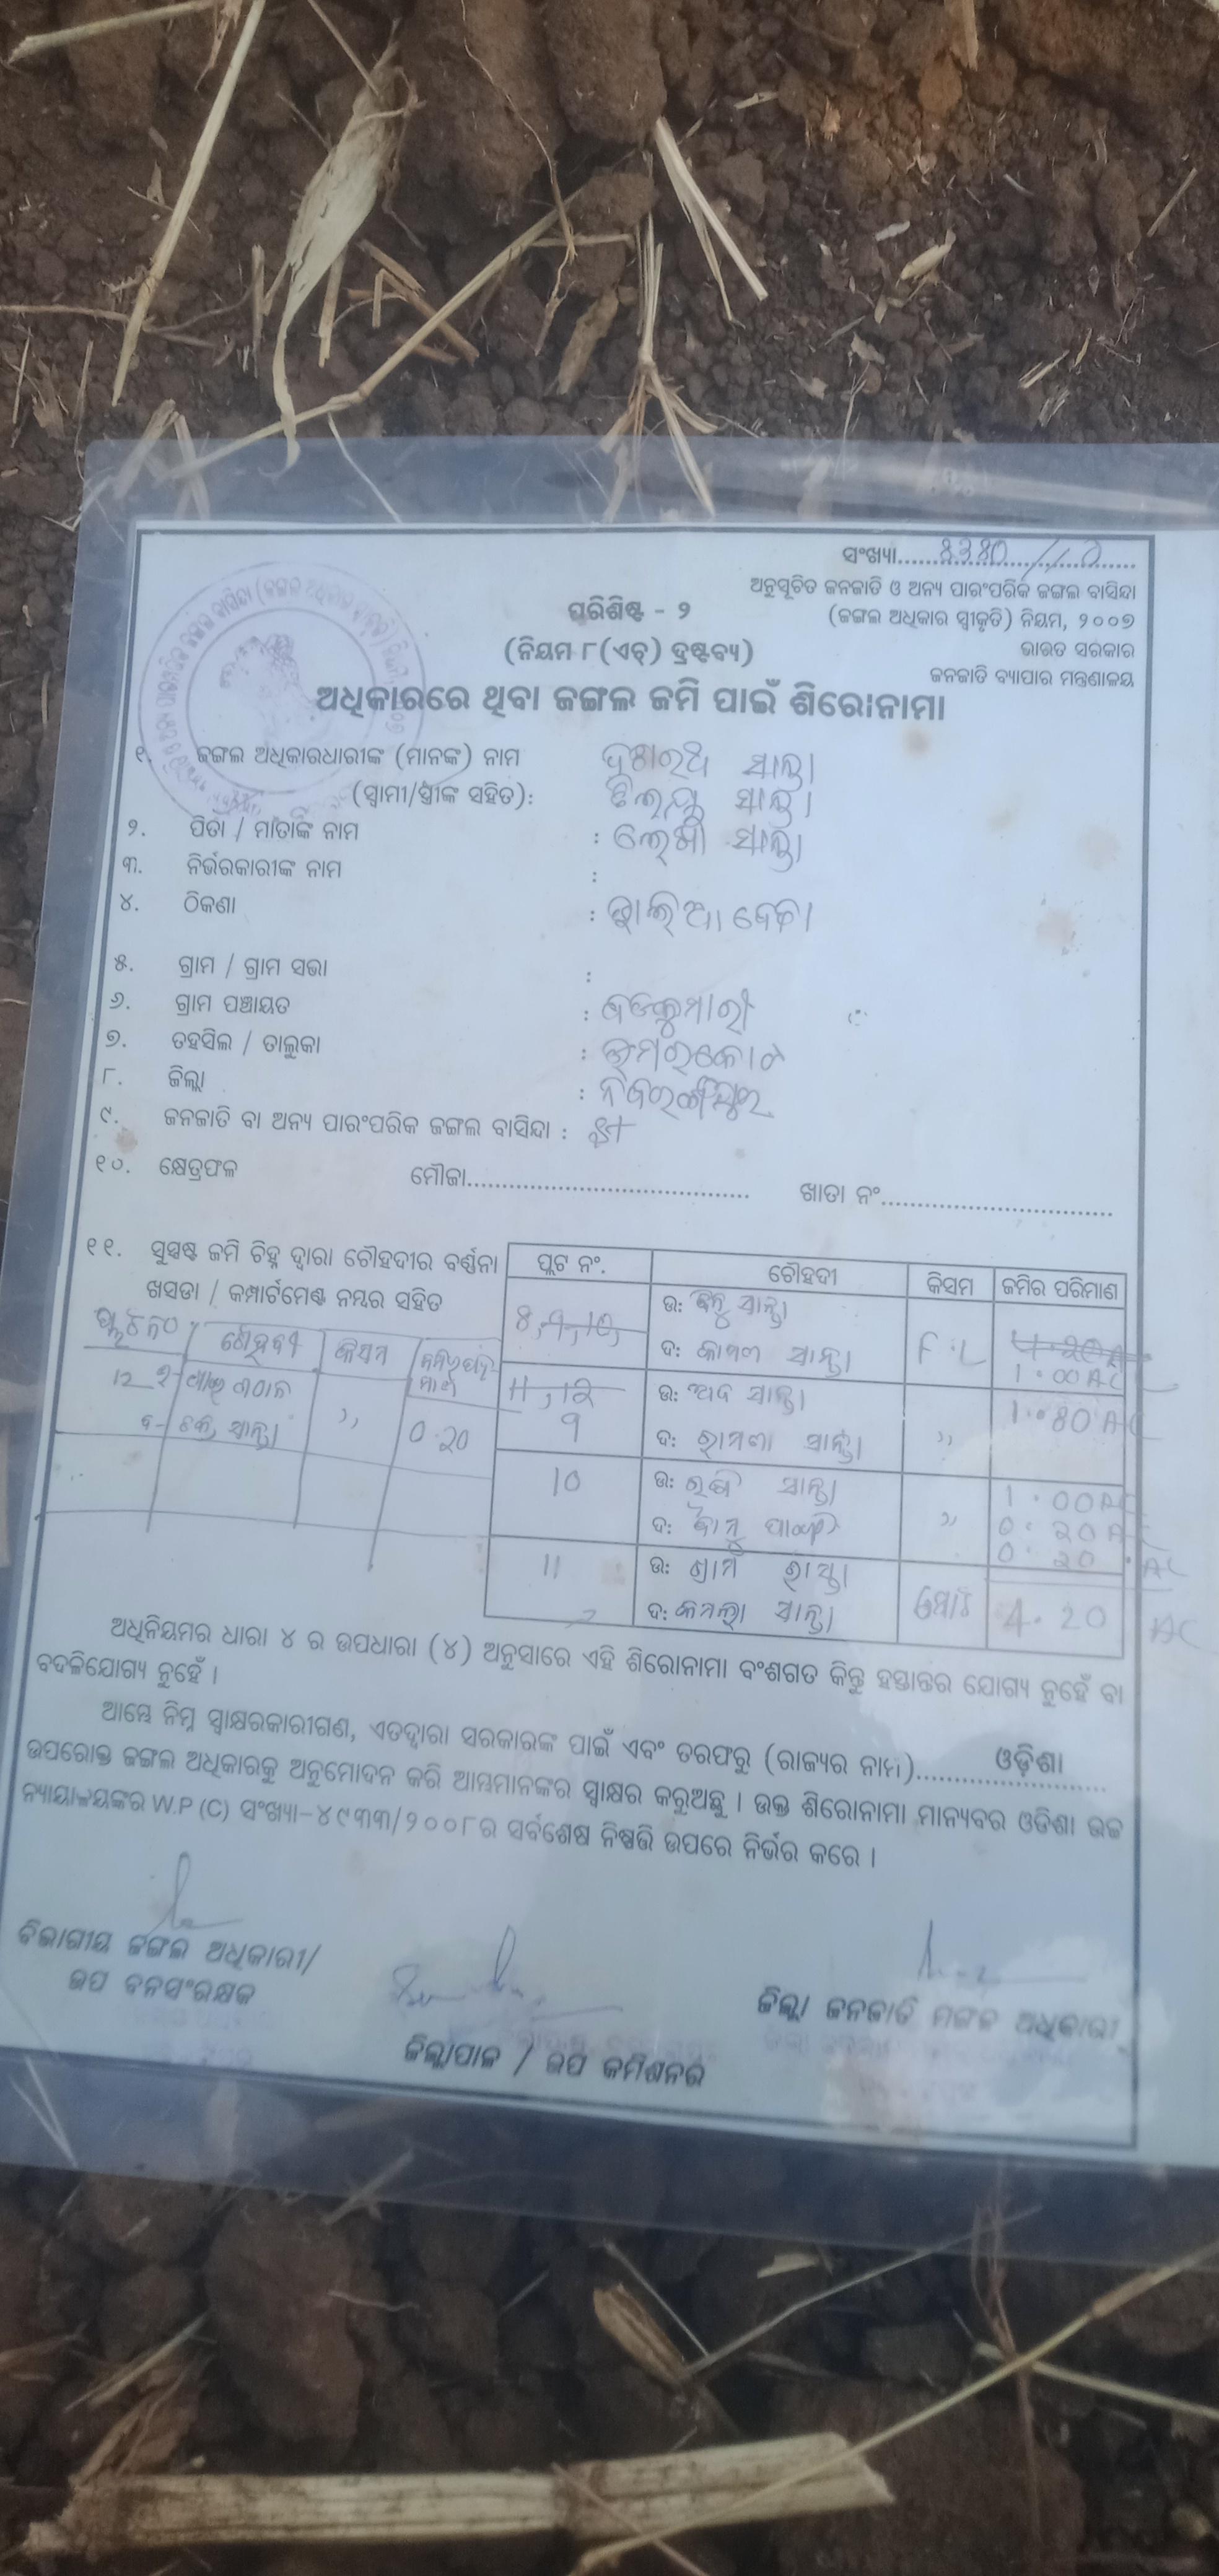 ସଂଖ୍ୟା.....8380/10
ଅନୁସୂଚିତ ଜନଜାତି ଓ ଅନ୍ୟ ପାରଂପରିକ ଜଙ୍ଗଲ ବାସିନ୍ଦା
(ଜଙ୍ଗଲ ଅଧିକାର ସ୍ୱୀକୃତି) ନିୟମ, ୨୦୦୭
ଭାରତ ସରକାର
ଜନଜାତି ବ୍ୟାପାର ମନ୍ତ୍ରଣାଳୟ
ପରିଶିଷ୍ଟ - ୨
(ନିୟମ ୮(ଏଚ୍) ଦ୍ରଷ୍ଟବ୍ୟ)
ଅଧିକାରରେ ଥିବା ଜଙ୍ଗଲ ଜମି ପାଇଁ ଶିରୋନାମା
୧. ଜଙ୍ଗଲ ଅଧିକାରଧାରୀଙ୍କ (ମାନଙ୍କ) ନାମ ଦଶରଥ ସାନ୍ତା
(ସ୍ୱାମୀ/ସ୍ତ୍ରୀଙ୍କ ସହିତ): ସାନ୍ତା
୨. ପିତା / ମାତାଙ୍କ ନାମ : ସାନ୍ତା
୩. ନିର୍ଭରକାରୀଙ୍କ ନାମ :
୪. ଠିକଣା :
୫. ଗ୍ରାମ / ଗ୍ରାମ ସଭା :
୬. ଗ୍ରାମ ପଞ୍ଚାୟତ : ବଡକୁମାରୀ
୭. ତହସିଲ / ତାଲୁକା : ଉମରକୋଟ
୮. ଜିଲ୍ଲା : ନବରଙ୍ଗପୁର
୯. ଜନଜାତି ବା ଅନ୍ୟ ପାରଂପରିକ ଜଙ୍ଗଲ ବାସିନ୍ଦା :
୧୦. କ୍ଷେତ୍ରଫଳ ମୌଜା..... ଖାତା ନଂ.....
୧୧. ସୁସ୍ପଷ୍ଟ ଜମି ଚିହ୍ନ ଦ୍ୱାରା ଚୌହଦୀର ବର୍ଣ୍ଣନା
ଖସଡା / କମ୍ପାର୍ଟମେଣ୍ଟ ନମ୍ବର ସହିତ
ପ୍ଲଟ ନଂ. ଚୌହଦୀ କିସମ ଜମିର ପରିମାଣ
8, 9, 10, ଉ: ସାନ୍ତା
ଦ: ସାନ୍ତା F.L 4.20 1.00 AC
11, 12 ଉ: ସାନ୍ତା 1.80 AC
9 ଦ: ସାନ୍ତା ,,
10 ଉ: ସାନ୍ତା 1.00 AC
ଦ: ,, 0.20 AC
0.20 AC
11 ଉ: ଗ୍ରାମ ରାସ୍ତା
ଦ: କମଲା ସାନ୍ତା ମୋଟ 4.20 AC
ପ୍ଲଟ ନଂ ଚୌହଦୀ କିସମ ଜମିର ପରିମାଣ
12 ଉ-
ଦ- ସାନ୍ତା ,, 0.20
ଅଧିନିୟମର ଧାରା ୪ ର ଉପଧାରା (୪) ଅନୁସାରେ ଏହି ଶିରୋନାମା ବଂଶଗତ କିନ୍ତୁ ହସ୍ତାନ୍ତର ଯୋଗ୍ୟ ନୁହେଁ ବା
ବଦଳିଯୋଗ୍ୟ ନୁହେଁ ।
ଆମ୍ଭେ ନିମ୍ନ ସ୍ୱାକ୍ଷରକାରୀଗଣ, ଏତଦ୍ୱାରା ସରକାରଙ୍କ ପାଇଁ ଏବଂ ତରଫରୁ (ରାଜ୍ୟର ନାମ).....ଓଡ଼ିଶା.....
ଉପରୋକ୍ତ ଜଙ୍ଗଲ ଅଧିକାରକୁ ଅନୁମୋଦନ କରି ଆମ୍ଭମାନଙ୍କର ସ୍ୱାକ୍ଷର କରୁଅଛୁ । ଉକ୍ତ ଶିରୋନାମା ମାନ୍ୟବର ଓଡିଶା ଉଚ୍ଚ
ନ୍ୟାୟାଳୟଙ୍କର W.P (C) ସଂଖ୍ୟା-୪୯୩୩/୨୦୦୮ର ସର୍ବଶେଷ ନିଷ୍ପତ୍ତି ଉପରେ ନିର୍ଭର କରେ ।
ବିଭାଗୀୟ ଜଙ୍ଗଲ ଅଧିକାରୀ/
ଉପ ବନସଂରକ୍ଷକ
ଜିଲ୍ଲାପାଳ / ଉପ କମିଶନର
ଜିଲ୍ଲା ଜନଜାତି ମଙ୍ଗଳ ଅଧିକାରୀ